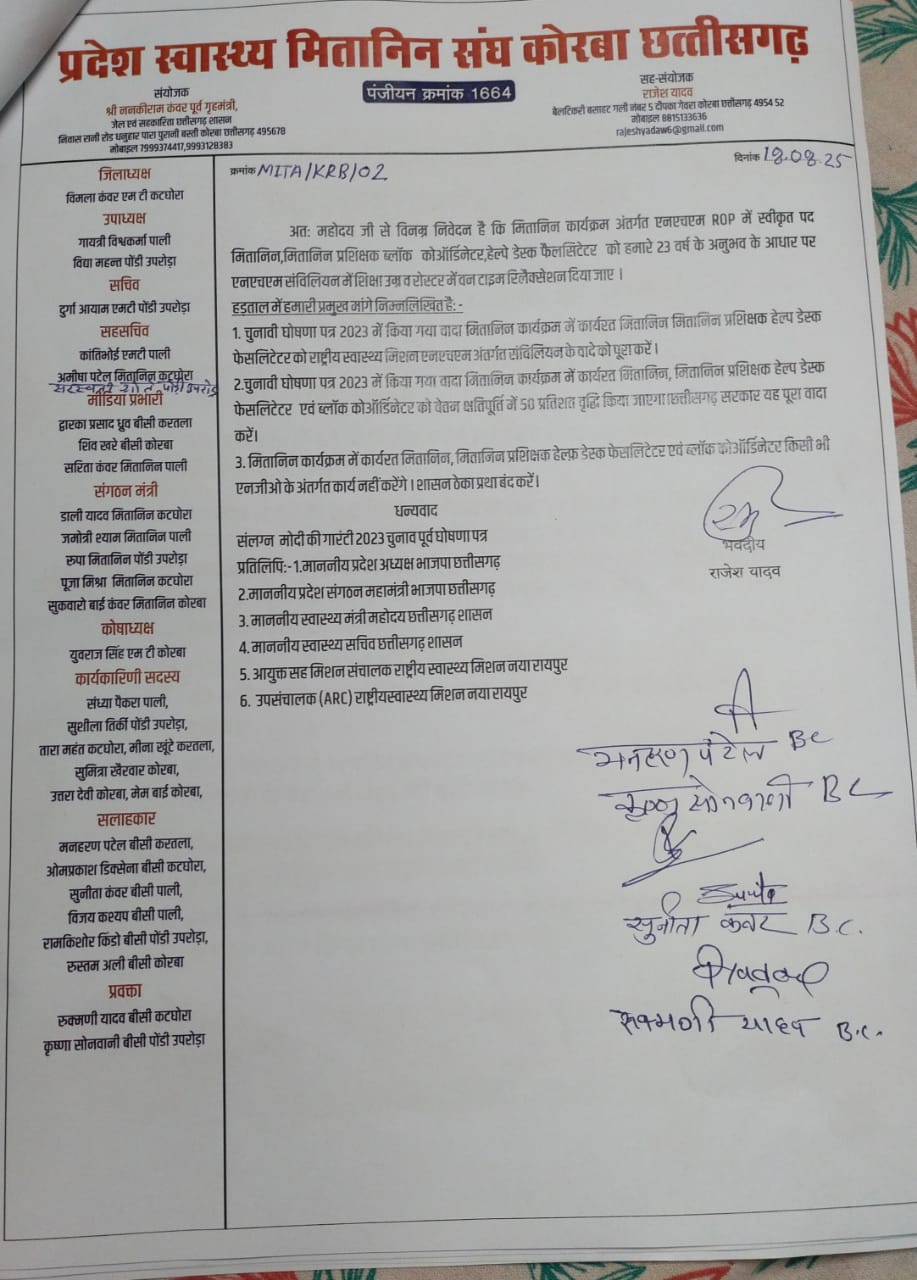 प्रदेश स्वास्थ्य मितानिन संघ कोरबा छत्तीसगढ़
पंजीयन क्रमांक 1664
संयोजक
श्री ननकीराम कंवर पूर्व गृहमंत्री,
जेल एवं सहकारिता छत्तीसगढ़ शासन
निवास रानी रोड धनुहार पारा पुरानी बस्ती कोरबा छत्तीसगढ़ 495678
मोबाइल 7999374417,9993128383
सह-संयोजक
राजेश यादव
बेलटिकरी बसाहट गली नंबर 5 दीपका गेवरा कोरबा छत्तीसगढ़ 4954 52
मोबाइल 8815133636
rajeshyadaw6@gmail.com
क्रमांक MITA/KRB/02
दिनांक 18.08.25
जिलाध्यक्ष
विमला कंवर एम टी कटघोरा
उपाध्यक्ष
गायत्री विश्वकर्मा पाली
विद्या महन्त पोंडी उपरोड़ा
सचिव
दुर्गा आयाम एमटी पोंडी उपरोड़ा
सहसचिव
कांतिभोई एमटी पाली
अमीषा पटेल मितानिन कटघोरा
मीडिया प्रभारी
द्वारका प्रसाद ध्रुव बीसी करतला
शिव खरे बीसी कोरबा
सरिता कंवर मितानिन पाली
संगठन मंत्री
डाली यादव मितानिन कटघोरा
जमोत्री श्याम मितानिन पाली
रुपा मितानिन पोंडी उपरोड़ा
पूजा मिश्रा मितानिन कटघोरा
सुकवारो बाई कंवर मितानिन कोरबा
कोषाध्यक्ष
युवराज सिंह एम टी कोरबा
कार्यकारिणी सदस्य
संध्या पैकरा पाली,
सुशीला तिर्की पोंडी उपरोड़ा,
तारा महंत कटघोरा, मीना खूंटे करतला,
सुमित्रा खैरवार कोरबा,
उत्तरा देवी कोरबा, मेम बाई कोरबा,
सलाहकार
मनहरण पटेल बीसी करतला,
ओमप्रकाश डिक्सेना बीसी कटघोरा,
सुनीता कंवर बीसी पाली,
विजय कश्यप बीसी पाली,
रामकिशोर किंडो बीसी पोंडी उपरोड़ा,
रुस्तम अली बीसी कोरबा
प्रवक्ता
रुक्मणी यादव बीसी कटघोरा
कृष्णा सोनवानी बीसी पोंडी उपरोड़ा
अतः महोदय जी से विनम्र निवेदन है कि मितानिन कार्यक्रम अंतर्गत एनएचएम ROP में स्वीकृत पद
मितानिन,मितानिन प्रशिक्षक ब्लॉक कोऑर्डिनेटर,हेल्पे डेस्क फैलसिटेटर को हमारे 23 वर्ष के अनुभव के आधार पर
एनएचएम संविलियन में शिक्षा उम्र व रोस्टर में वन टाइम रिलैक्सेशन दिया जाए ।
हड़ताल में हमारी प्रमुख मांगे निम्नलिखित है: -
1. चुनावी घोषणा पत्र 2023 में किया गया वादा मितानिन कार्यक्रम में कार्यरत मितानिन मितानिन प्रशिक्षक हेल्प डेस्क
फेसलिटेटर को राष्ट्रीय स्वास्थ्य मिशन एनएचएम अंतर्गत संविलियन के वादे को पूरा करें ।
2.चुनावी घोषणा पत्र 2023 में किया गया वादा मितानिन कार्यक्रम में कार्यरत मितानिन, मितानिन प्रशिक्षक हेल्प डेस्क
फेसलिटेटर एवं ब्लॉक कोऑर्डिनेटर को वेतन क्षतिपूर्ति में 50 प्रतिशत वृद्धि किया जाएगा।छत्तीसगढ़ सरकार यह पूरा वादा
करें।
3. मितानिन कार्यक्रम में कार्यरत मितानिन, मितानिन प्रशिक्षक हेल्फ़ डेस्क फेसलिटेटर एवं ब्लॉक कोऑर्डिनेटर किसी भी
एनजीओ के अंतर्गत कार्य नहीं करेंगे । शासन ठेका प्रथा बंद करें ।
धन्यवाद
संलग्न मोदी की गारंटी 2023 चुनाव पूर्व घोषणा पत्र
प्रतिलिपि:- 1.माननीय प्रदेश अध्यक्ष भाजपा छत्तीसगढ़
2.माननीय प्रदेश संगठन महामंत्री भाजपा छत्तीसगढ़
3. माननीय स्वास्थ्य मंत्री महोदय छत्तीसगढ़ शासन
4. माननीय स्वास्थ्य सचिव छत्तीसगढ़ शासन
5. आयुक्त सह मिशन संचालक राष्ट्रीय स्वास्थ्य मिशन नया रायपुर
6. उपसंचालक (ARC) राष्ट्रीयस्वास्थ्य मिशन नया रायपुर
भवदीय
राजेश यादव
मनहरण पटेल BC
कृष्णा सोनवानी BC
सुनीता कंवर B.C.
रुक्मणी यादव B.C.